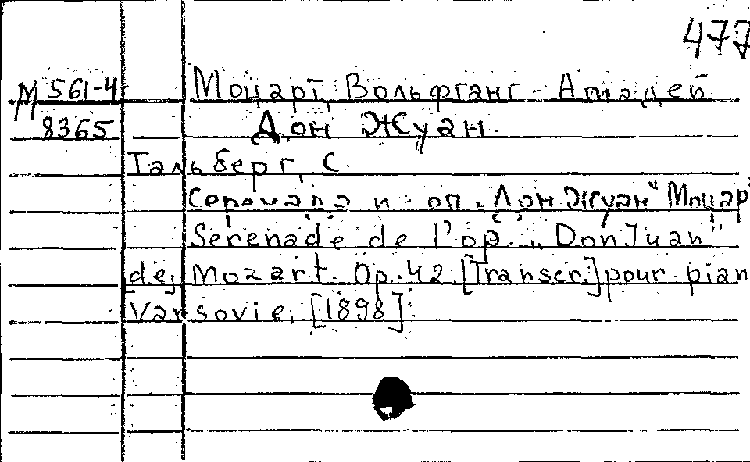 477
М 561-4 Моцарт, Вольфганг-Амадей
8365 Дон Жуан.
Тальберг, С
Серенада и оп. „Дон Жуан" Моцар
Serenade de l'op. „Don Juan"
de Mozart. Op. 42. [Transcr.] pour pian
Varsovie, [1898]